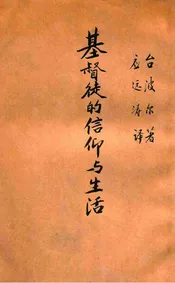 台波尔著
应远涛译
基督徒的信仰与生活